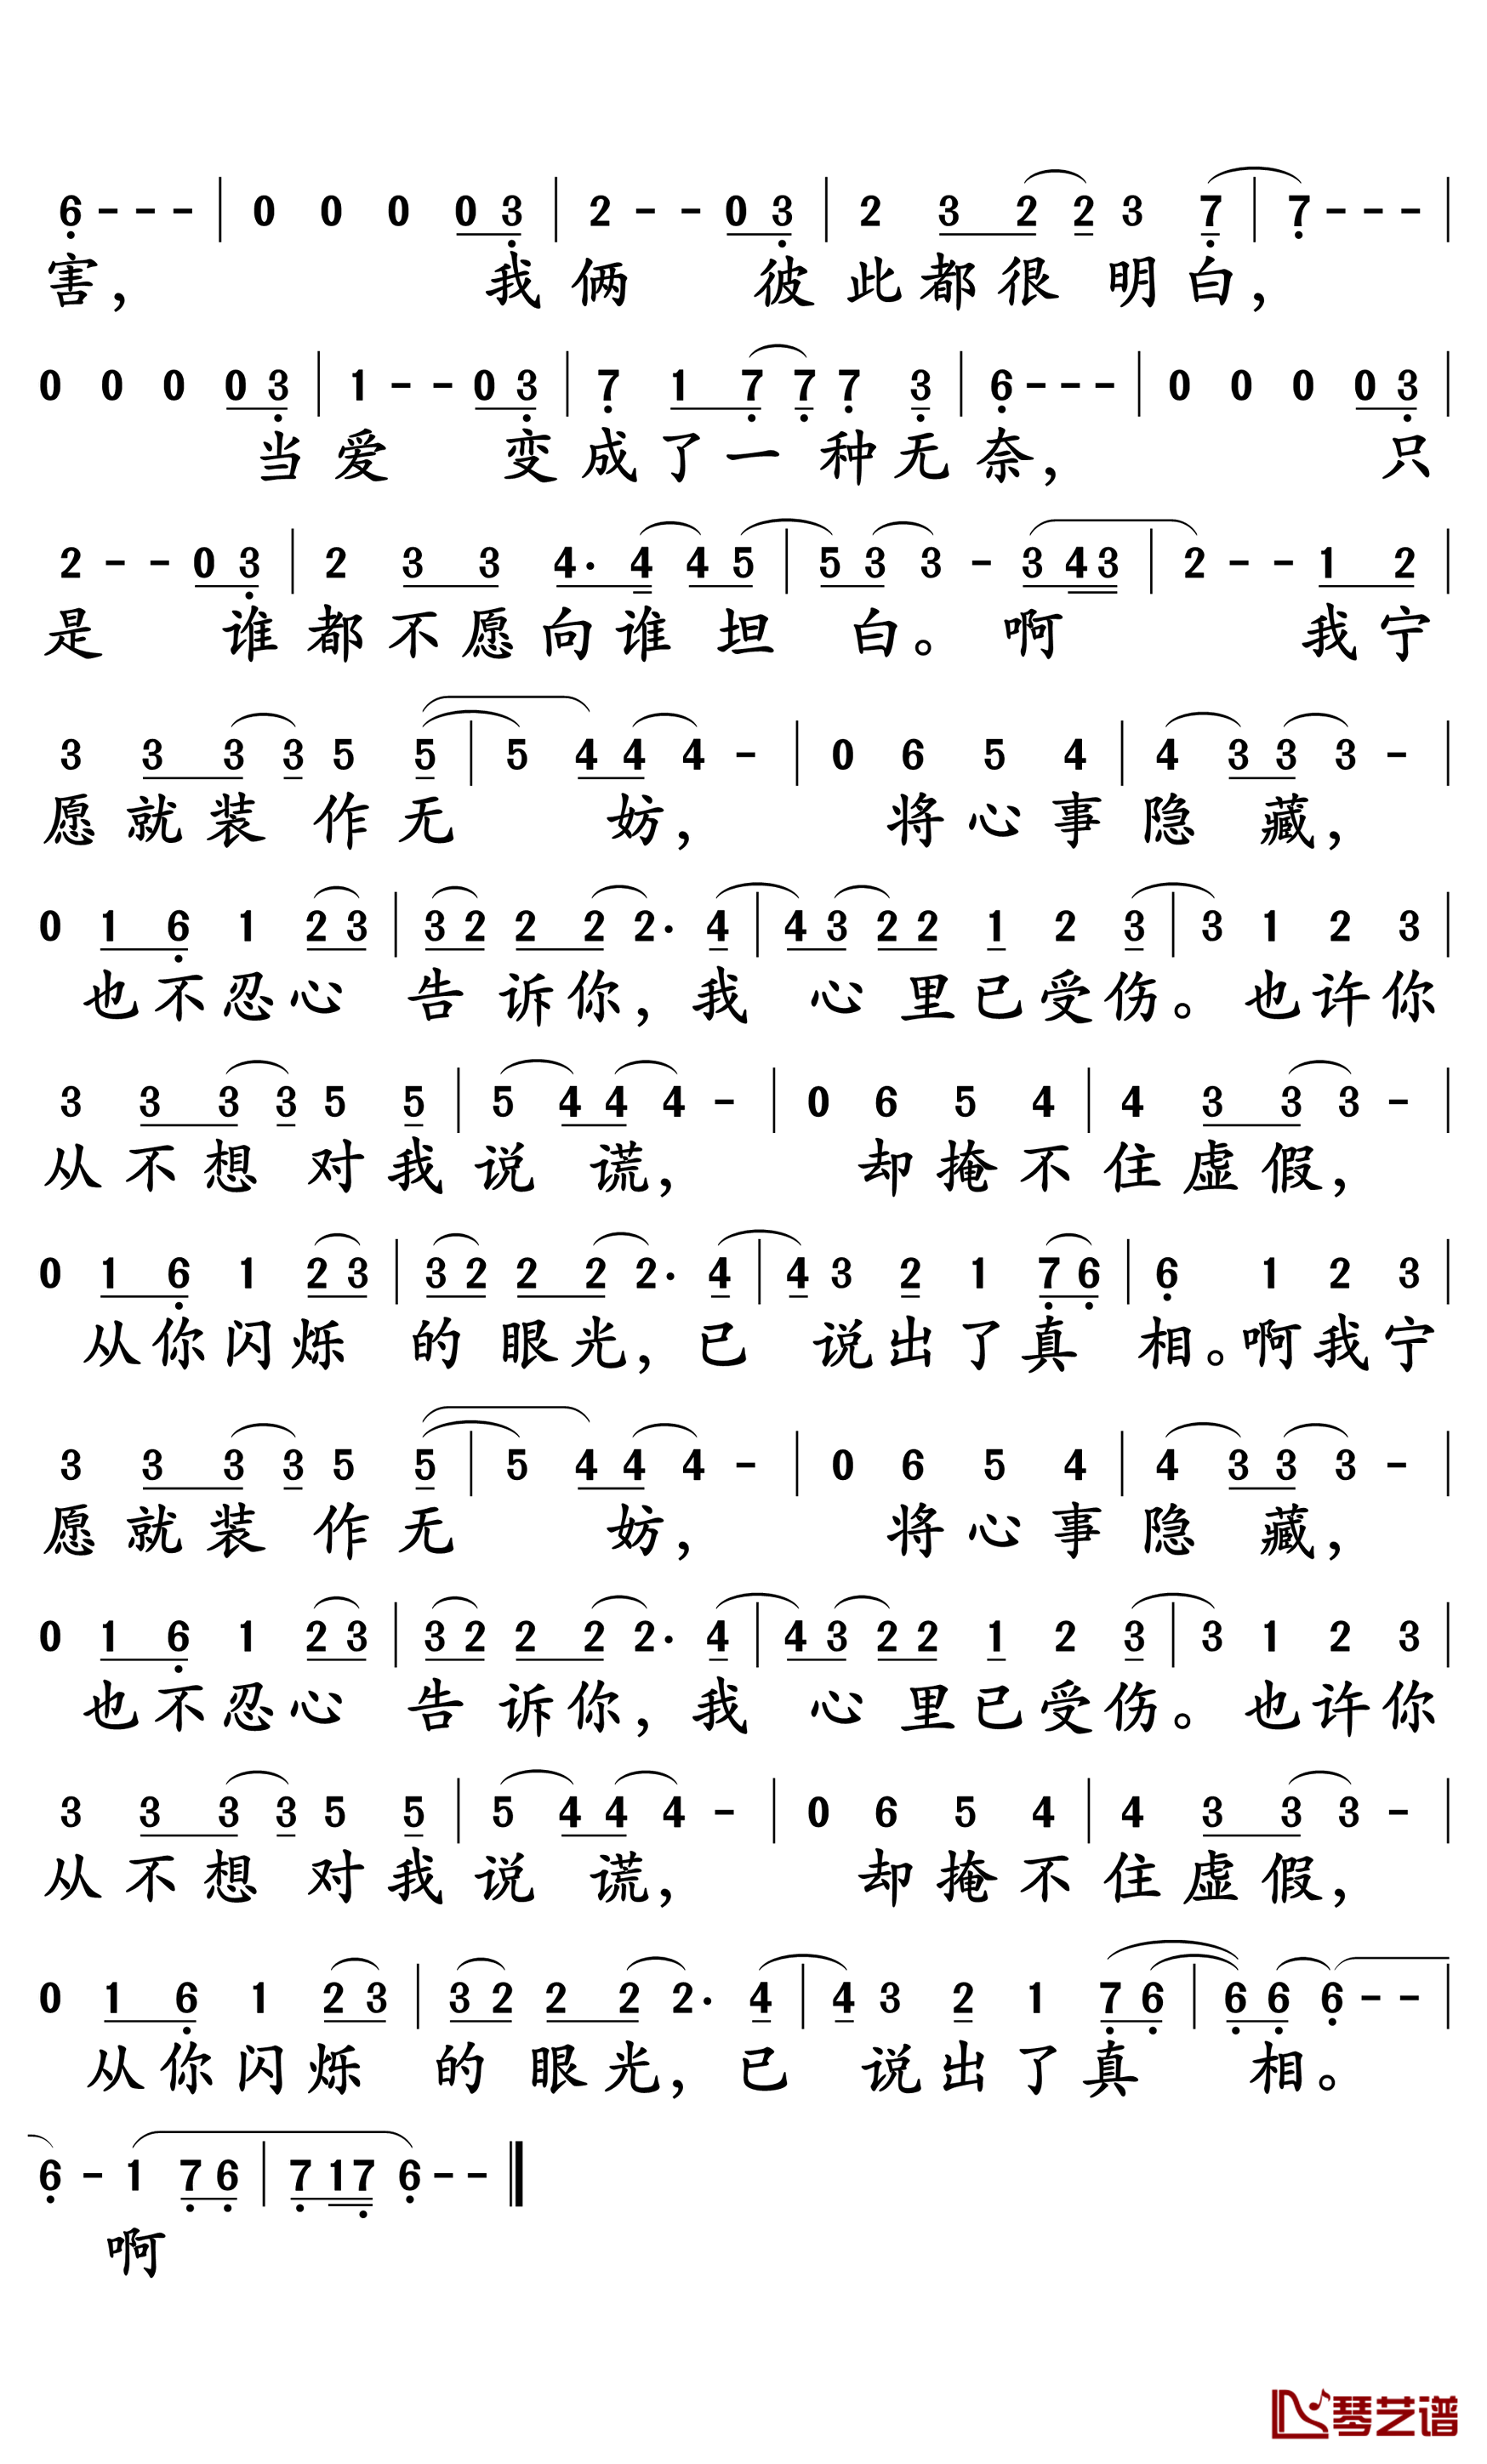 6 - - - | 0 0 0 0 3 | 2 - - 0 3 | 2 3 2 2 3 7 | 7 - - - |
害， 我俩 彼此都很明白，
0 0 0 0 3 | 1 - - 0 3 | 7 1 7 7 7 3 | 6 - - - | 0 0 0 0 3 |
当爱 变成了一种无奈， 只
2 - - 0 3 | 2 3 3 4· 4 4 5 | 5 3 3 - 3 4 3 | 2 - - 1 2 |
是 谁都不愿向谁坦 白。啊 我宁
3 3 3 3 5 5 | 5 4 4 4 - | 0 6 5 4 | 4 3 3 3 - |
愿就装作无 妨， 将心事隐 藏，
0 1 6 1 2 3 | 3 2 2 2 2· 4 | 4 3 2 2 1 2 3 | 3 1 2 3 |
也不忍心 告诉你，我 心里已受伤。也许你
3 3 3 3 5 5 | 5 4 4 4 - | 0 6 5 4 | 4 3 3 3 - |
从不想对我说 谎， 却掩不住虚假，
0 1 6 1 2 3 | 3 2 2 2 2· 4 | 4 3 2 1 7 6 | 6 1 2 3 |
从你闪烁 的眼光，已 说出了真 相。啊我宁
3 3 3 3 5 5 | 5 4 4 4 - | 0 6 5 4 | 4 3 3 3 - |
愿就装作无 妨， 将心事隐 藏，
0 1 6 1 2 3 | 3 2 2 2 2· 4 | 4 3 2 2 1 2 3 | 3 1 2 3 |
也不忍心 告诉你，我 心里已受伤。也许你
3 3 3 3 5 5 | 5 4 4 4 - | 0 6 5 4 | 4 3 3 3 - |
从不想对我说 谎， 却掩不住虚假，
0 1 6 1 2 3 | 3 2 2 2 2· 4 | 4 3 2 1 7 6 | 6 6 6 - - |
从你闪烁 的眼光，已 说出了真 相。
6 - 1 7 6 | 7 1 7 6 - - ‖
啊
琴艺谱